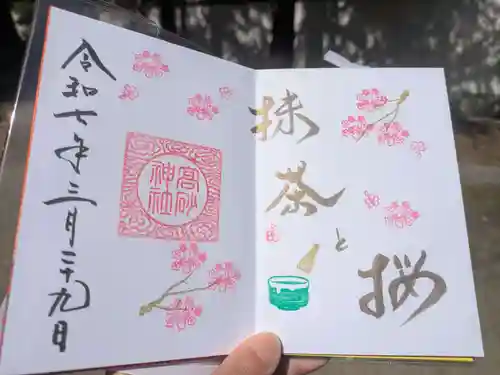 抹茶
と
桜
高砂
神社
令和七年三月二十九日